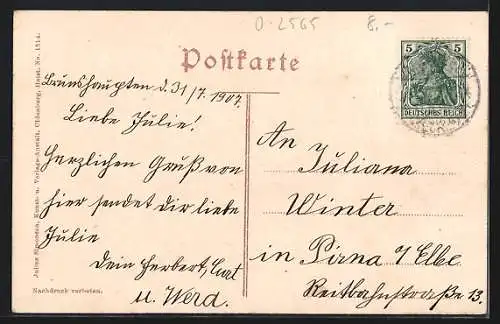 O-2565 8.-
Postkarte
5 5
DEUTSCHES REICH
Brunshaupten d. 31/7. 1907.
Liebe Julie!
Herzlichen Gruß von
hier sendet dir liebe
Julie
Dein Herbert, Curt
u. Werd.
An
Juliana
Winter
in Pirna a/Elbe
Reitbahnstraße 13.
Julius Simonsen, Kunst- u. Verlags-Anstalt, Oldenburg, Holst. No. 1514.
Nachdruck verboten.